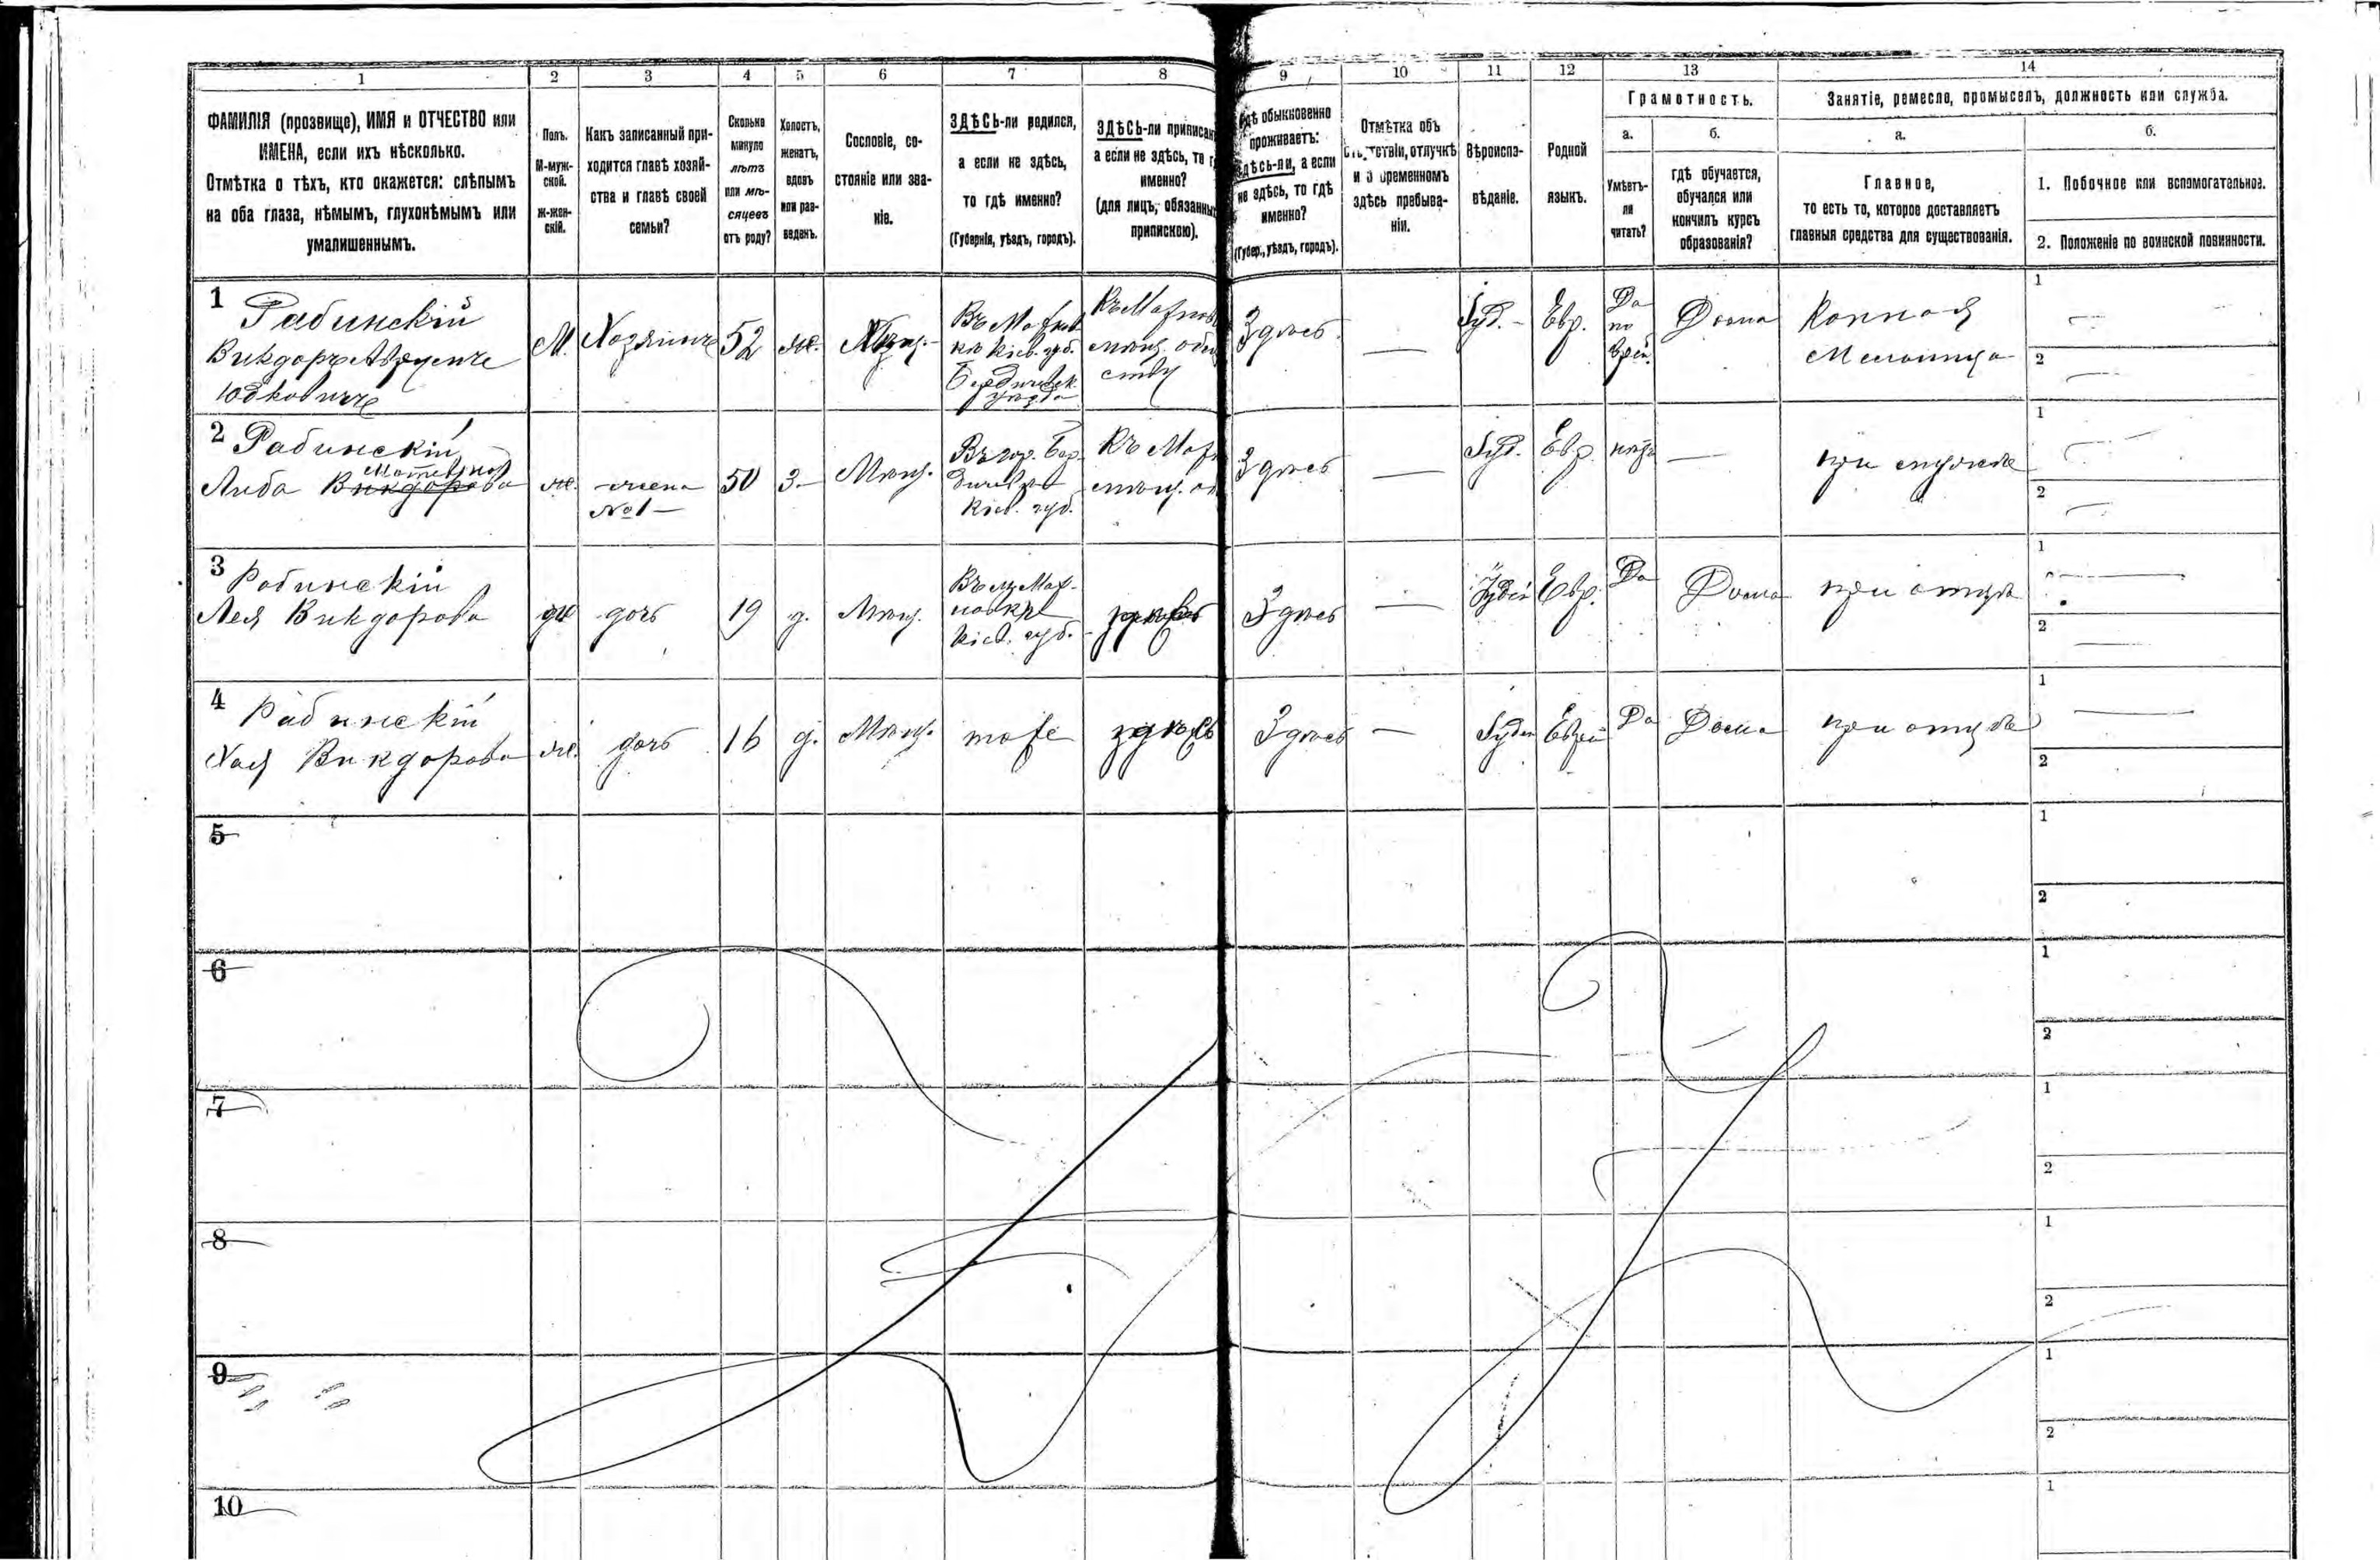 1 2 3 4 5 6 7 8 9 10 11 12 13 14
ФАМИЛІЯ (прозвище), ИМЯ и ОТЧЕСТВО или
ИМЕНА, если ихъ нѣсколько.
Отмѣтка о тѣхъ, кто окажется: слѣпымъ
на оба глаза, нѣмымъ, глухонѣмымъ или
умалишеннымъ.
Полъ.
М-муж-
ской.
Ж-жен-
скій.
Какъ записанный при-
ходится главѣ хозяй-
ства и главѣ своей
семьи?
Сколько
минуло
лѣтъ
или мѣ-
сяцевъ
отъ роду?
Холостъ,
женатъ,
вдовъ
или раз-
веденъ.
Сословіе, со-
стояніе или зва-
ніе.
ЗДѢСЬ-ли родился,
а если не здѣсь,
то гдѣ именно?
(Губернія, уѣздъ, городъ).
ЗДѢСЬ-ли приписанъ
а если не здѣсь, то
именно?
(для лицъ, обязанны
припискою).
обыкновенно
проживаетъ:
здѣсь-ли, а если
не здѣсь, то гдѣ
именно?
(Губер., уѣздъ, городъ).
Отмѣтка объ
отсутствіи, отлучкѣ
и о временномъ
здѣсь пребыва-
ніи.
Вѣроиспо-
вѣданіе.
Родной
языкъ.
Грамотность.
а.
Умѣетъ-
ли
читать?
б.
гдѣ обучается,
обучался или
кончилъ курсъ
образованія?
Занятіе, ремесло, промыселъ, должность или служба.
а.
Главное,
то есть то, которое доставляетъ
главныя средства для существованія.
б.
1. Побочное или вспомогательное.
2. Положеніе по воинской повинности.
1 Рабинскій
Викдоръ
Юдковичъ
М.
Хозяинъ
52
ж.
Мѣщ.
кѣ Кіев. губ.
Бердичевск.
уѣзда
мѣщ. обще
ству
Здѣсь
—
Іуд.
Евр.
Да
по
Дома
Конная
Мельница
1
2
2 Рабинскій
Матевна
Либа Викдорова
ж.
жена
№1
50
З.
Мѣщ.
Въ гор. Бер
дичевѣ
Кіев. губ.
мѣщ.
Здѣсь
—
Іуд.
Евр.
нѣтъ
—
при мужѣ
1
2
3 Рабинскій
Лея Викдорова
ж
дочь
19
д.
Мѣщ.
Въ м. Мах-
новкѣ
Кіев. губ.
здѣсь
Здѣсь
—
Іудей
Евр.
Да
Дома
при отцѣ
1
2
4 Рабинскій
Хая Викдорова
ж.
дочь
16
д.
Мѣщ.
тоже
здѣсь
Здѣсь
—
Іудей
Еврей
Да
Дома
при отцѣ
1
2
5
1
2
6
1
2
7
1
2
8
1
2
9
1
2
10
1